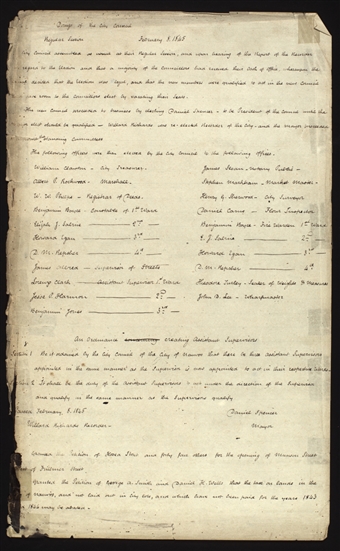 Doings of the City Council
Regular Session February 8. 1845
City Council assembled as usual at their Regular Session, and upon hearing of the Report of the Recorder
regard to the Election and that a majority of the Councillors had received their Oath of Office, whereupon the
decided that the Election was legal, and that the new members are qualified to act in the new Council
and were in the Councillors shut by vacating their seats.
The new Council proceeded to business by electing Daniel Spencer to be President of the Council until the
shall be qualified - Willard Richards was re-elected Recorder of the City - and the Mayor
Standing Committees
The following officers were then elected by the City Council to the following offices.
William Clayton - City Treasurer. James Sloan - Notary Public
Albert P. Rockwood - Marshall. Stephen Markham - Market Master
W. W. Phelps - Register of Deeds. Henry G. Sherwood - City Surveyor
Benjamin Boyce - Constable of 1st Ward Daniel Carns - Flour Inspector
Elijah J. Sabine - 2nd Benjamin Boyce - Fire Warden 1st Ward
Howard Egan - 3rd E. J. Sabine 2nd
D. M. Repsher - 4th Howard Egan - 3rd
James - Supervisor of Streets D. M. Repsher - 4th
Lorenzo Clark - Assistant Supervisor 1st Ward Theodore Turley - Sealer of Weights & Measures
Jesse P. Harmon - 2nd John D. Lee - Wharfmaster
Benjamin Jones 3rd
An Ordinance creating Assistant Supervisors
Section 1 Be it ordained by the City Council of the City of Nauvoo that there be three assistant Supervisors
appointed in the same manner as the Supervisor is now appointed to act in their respective Wards
Section 2 It shall be the duty of the Assistant Supervisors to act under the direction of the Supervisor
and qualify in the same manner as the Supervisors qualify
Passed February 8. 1845 Daniel Spencer
Willard Richards Recorder Mayor
Petition of Hosea Stout and forty five others for the opening of Street
of Street
Granted the Petition of George A. Smith and Daniel H. Wells that the tax on lands in the
of Nauvoo, and not laid out in City lots, and which have not been paid for the years 1843
1844 may be abated